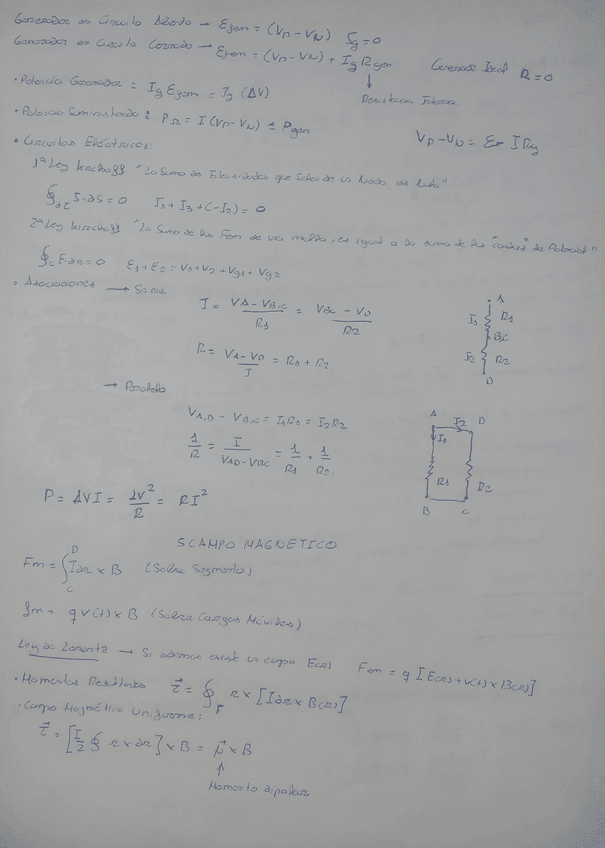 Generador en Circuito Abierto → Egen = (Vp - VN) Ig = 0
Generador en Circuito Cerrado → Egen = (Vp - VN) + Ig Rgen Generador Ideal R = 0
↓
Resistencia Interna.
• Potencia Generador = Ig Egen = Ig (ΔV)
• Potencia Suministrada: PR = I (Vp - VN) ≤ Pgen
Vp - VN = E - I Rg
• Circuitos Eléctricos:
1ª Ley Kirchoff "La Suma de Intensidades que Salen de un Nodo es Nulo"
∮ J·ds = 0 I1 + I3 + (-I2) = 0
2ª Ley Kirchoff "La Suma de las Fem de una malla es igual a la suma de las "caídas" de Potencial"
∮c E·dr = 0 E1 + E2 = V1 + V2 + Vg1 + Vg2
• Asociaciones → Serie
I = VA - VBC / R1 = VBC - VD / R2
R = VA - VD / I = R1 + R2
A
I1 R1
BC
I2 R2
D
→ Paralelo
VA,D - VB,C = I1R1 = I2R2
1/R = I / VAD - VBC = 1/R1 + 1/R2
A I2 D
I1
R1 R2
B C
P = ΔVI = ΔV²/R = RI²
5 CAMPO MAGNETICO
Fm = ∫ C D Idr × B (Sobre Segmento)
fm = q v(t) × B (Sobre Cargas Móviles)
Ley de Lorentz → Si además existe un campo E(r) Fem = q [E(r) + v(t) × B(r)]
• Momentos Resultante τ⃗ = ∮Γ r × [Idr × B(r)]
• Campo Magnético Uniforme:
τ⃗ = [I/2 ∮ r × dr] × B = μ⃗ × B
↑
Momento dipolar